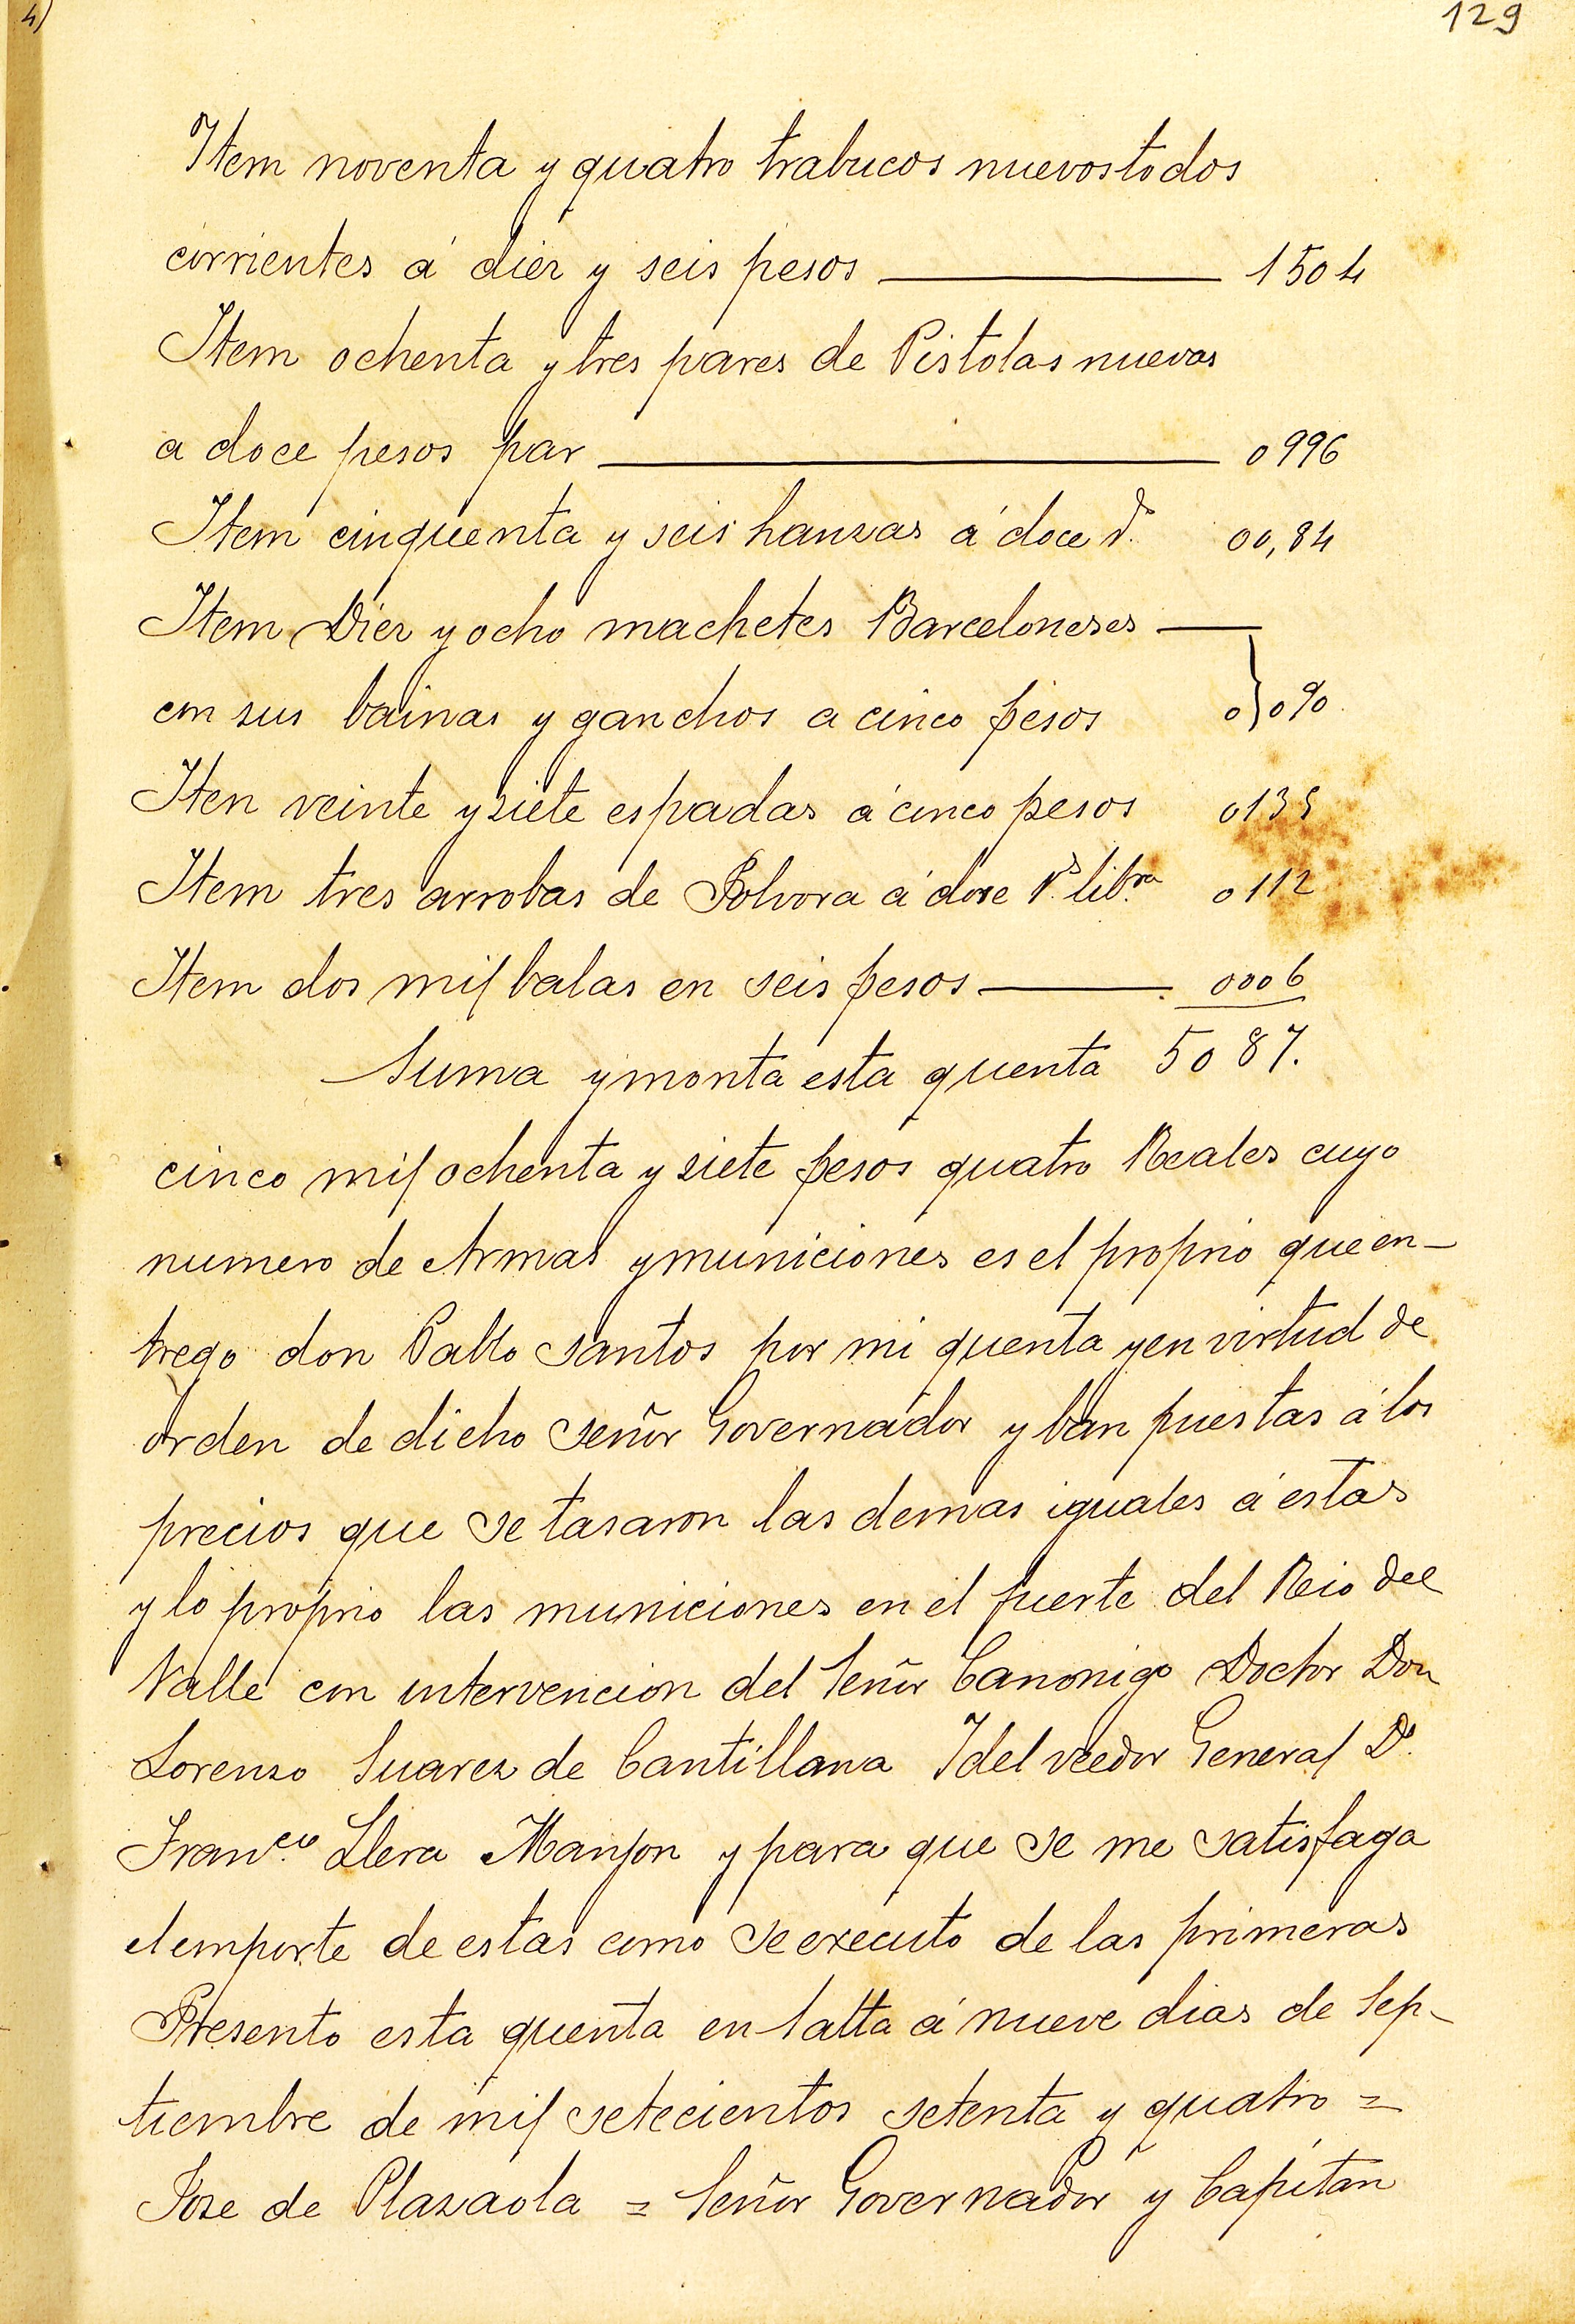 4)
129
Item noventa y quatro trabucos nuevos todos
corrientes á diez y seis pesos — 1504
Item ochenta y tres pares de Pistolas nuevas
a doce pesos par — 0996
Item cinquenta y seis lanzas á doce rs. 00,84
Item Diez y ocho machetes Barceloneses —
con sus bainas y ganchos a cinco pesos 0}090
Iten veinte y siete espadas á cinco pesos 0135
Item tres arrobas de Polvora á doze rs. libra 0112
Item dos mil balas en seis pesos — 0006
Suma y monta esta quenta 5087.
cinco mil ochenta y siete pesos quatro Reales cuyo
numero de Armas y municiones es el proprio que en-
trego don Pablo Santos por mi quenta y en virtud de
orden de dicho Señor Governador y ban puestas á los
precios que se tasaron las demas iguales á estas
y lo proprio las municiones en el fuerte del Reio del
Valle con intervencion del Señor Canonigo Doctor Don
Lorenzo Suarez de Cantillana Y del veedor General Dn.
Franco. Llera Manjon y para que se me satisfaga
el emporte de estas como se executo de las primeras
Presento esta quenta en Saltta á nueve dias de Sep-
tiembre de mil setecientos setenta y quatro =
Jose de Plazaola = Señor Governador y Capitan